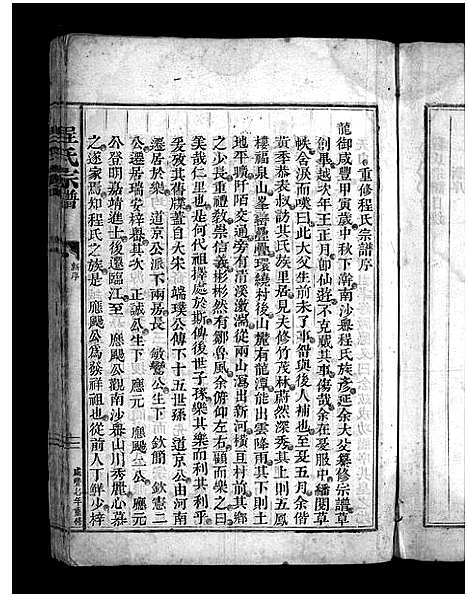 重修程氏宗譜序
龍御咸豐甲寅歲中秋下澣南沙塢程氏族彥延余大父纂修宗譜草
創畢越次年王正月卽仙遊不克蕆其事傷哉余在憂服中繙閱草
帙含淚而嘆曰此大父生前未了事留與後人補也至夏五月余偕
黃季恭表叔訪其氏族里居見夫修竹茂林蔚然深秀其上則五鳳
樓福泉山峯巒疊疊環繞村後山麓有龍潭能出雲降雨其下則土
地平曠阡陌交通旁有清溪激湍從兩山瀉出新河橫亘村前其鄉
之少長重禮敎崇信義彬彬然有鄒魯風余俯仰左右顧而樂之曰
美哉仁里也是何代祖擇處於斯俾後世子孫樂其樂而利其利乎
爰攷其舊牒蓋自大宋 端璞公傳下十五世孫 道京公由河南
遷居於樂 道京公派下兩房長 敏鸞公生下 欽簡 欽憲二
公遷居瑞安梓嶴其次 正誠公生下應元 應颺二公 應元
公登明嘉靖進士後還臨江至 應颺公觀南沙嶴山川秀麗心慕
之遂家焉知程氏之族是 應颺公爲發祥祖也從前人丁鮮少梓
程氏宗譜
新序
咸豐七年重修